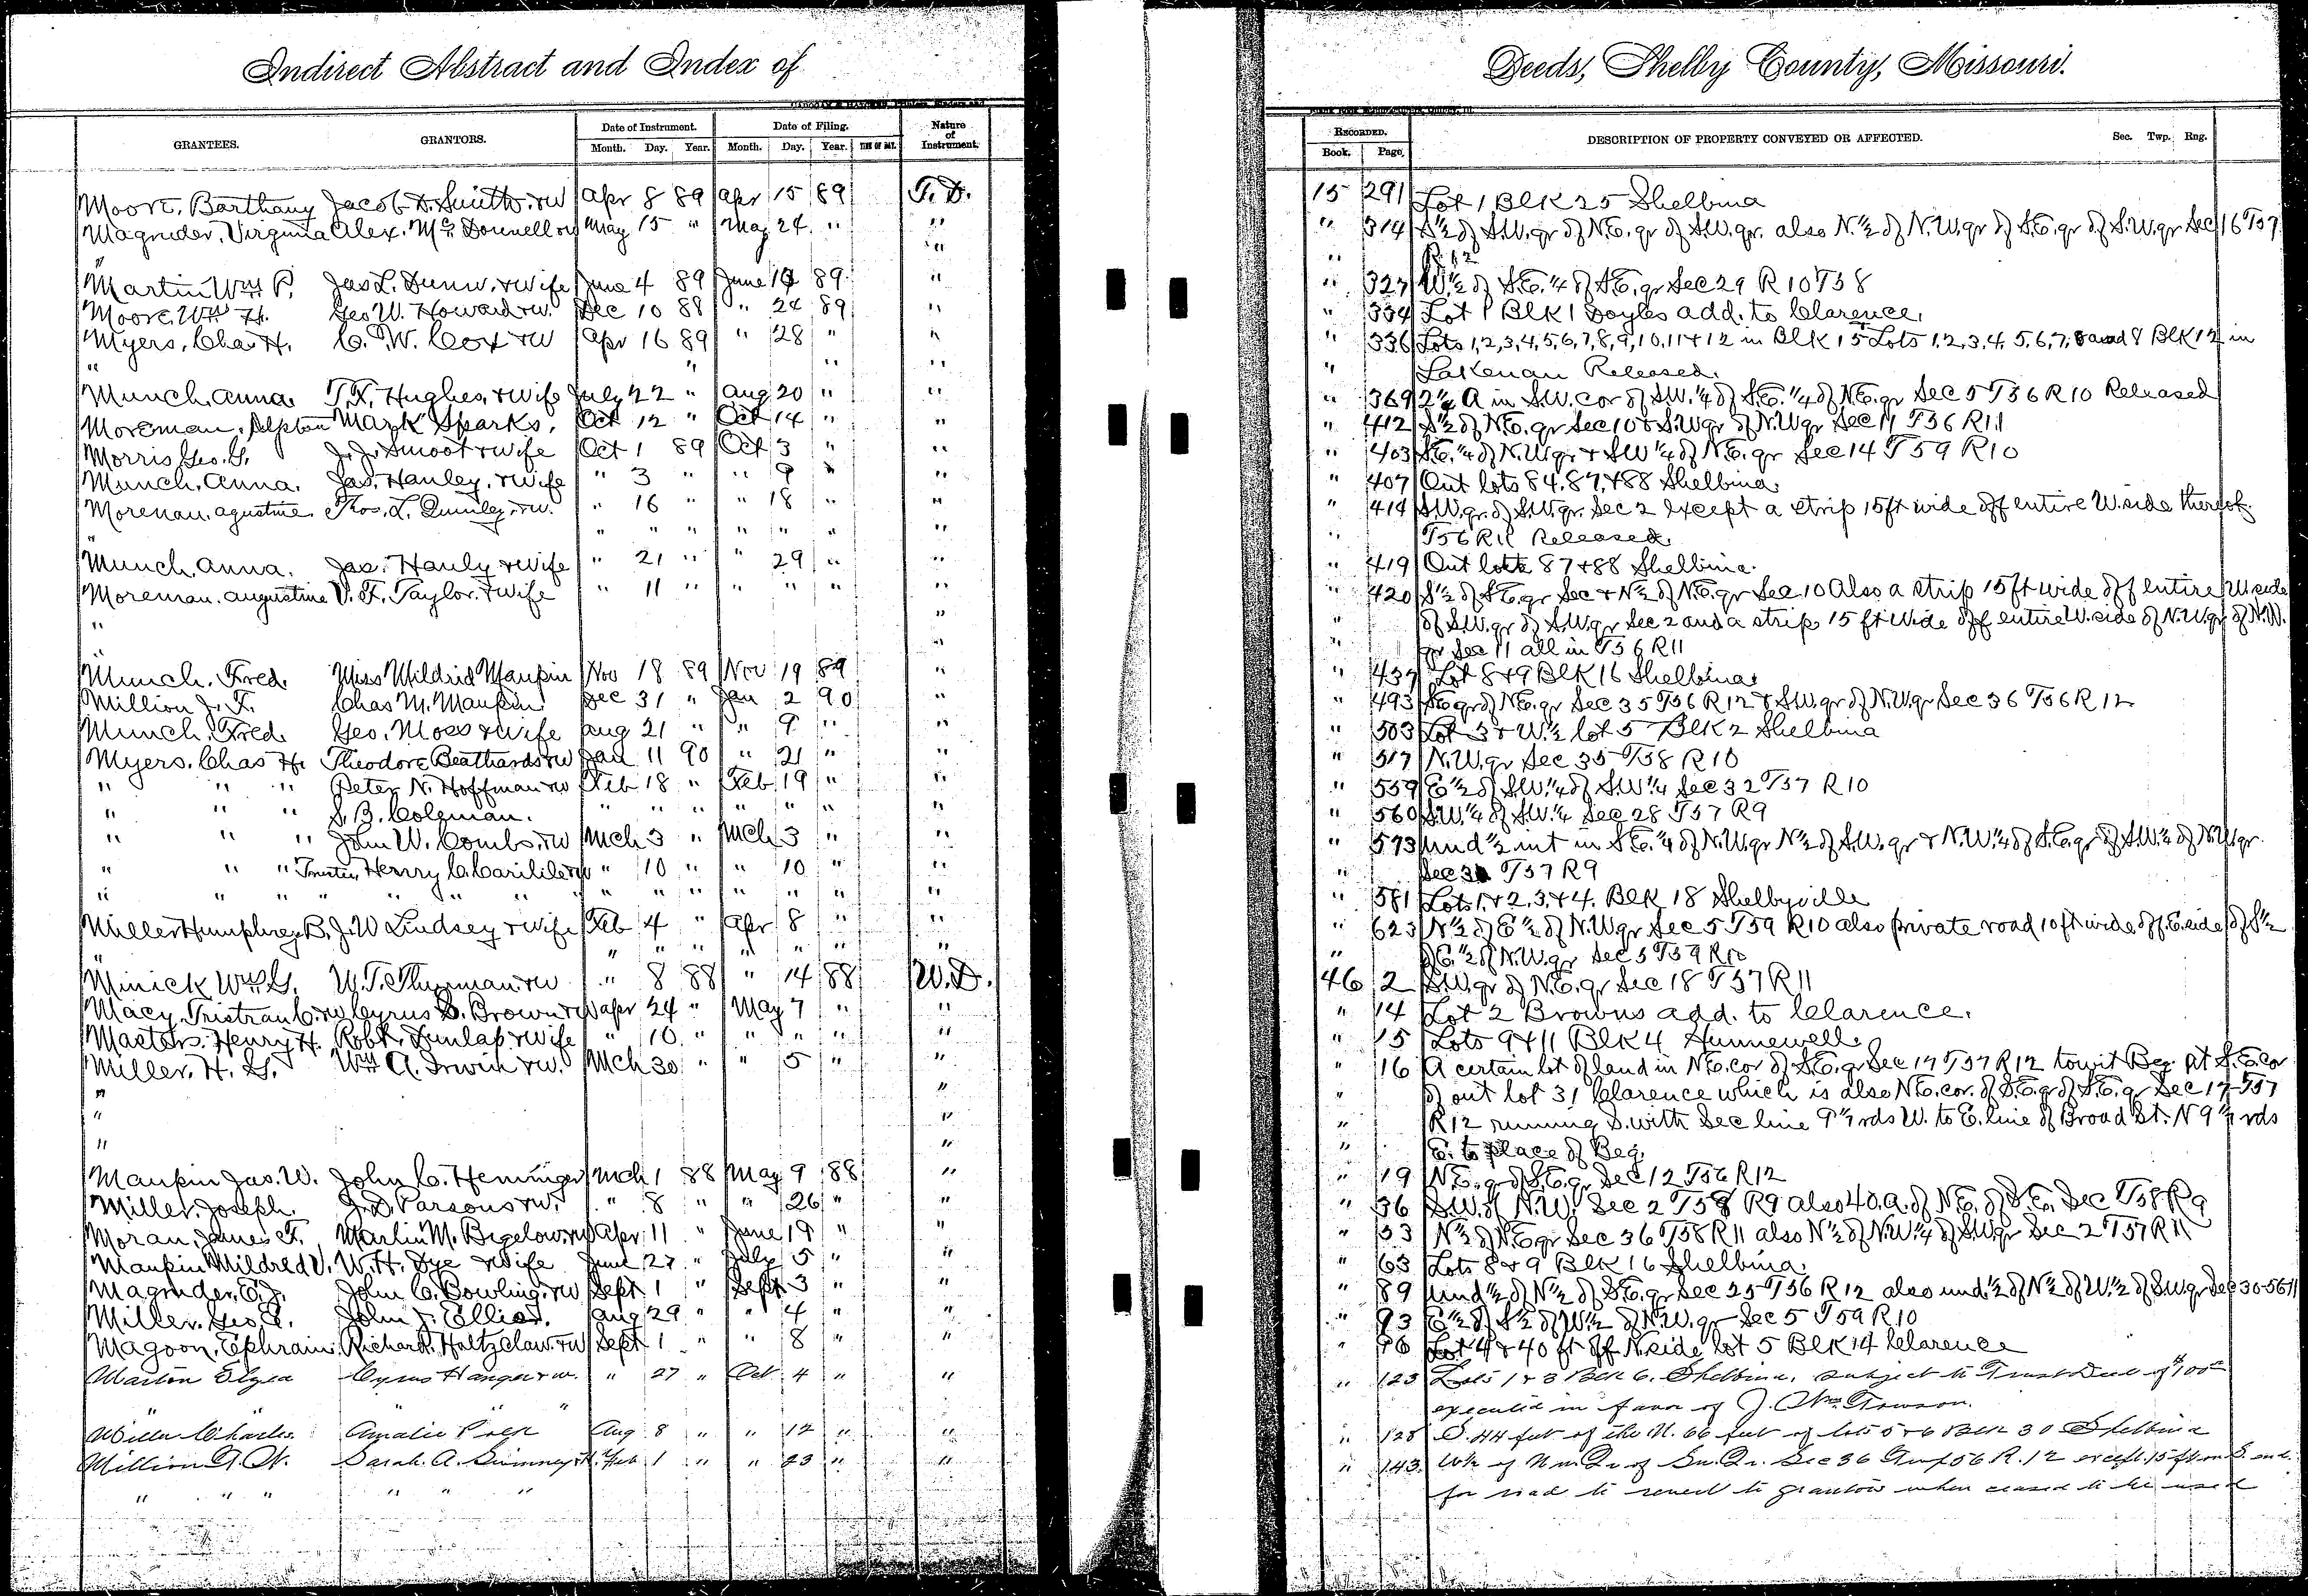 Indirect Abstract and Index of Deeds, Shelby County, Missouri.
GRANTEES. GRANTORS. Date of Instrument. Date of Filing. Nature of Instrument. RECORDED. DESCRIPTION OF PROPERTY CONVEYED OR AFFECTED. Sec. Twp. Rng.
Month. Day. Year. Month. Day. Year. TIME OF DAY. Book. Page.
Moore, Barthany Jacob D. Smith & W Apr 8 89 Apr 15 89 T. D. 15 291 Lot 1 Blk 25 Shelbina
Magruder, Virginia Alex. McDonnell & W May 15 " May 24 " " " 314 S ½ of S.W. qr of N.E. qr of S.W. qr. also N. ½ of N.W. qr of S.E. qr of S.W. qr Sec 16 T57
" " " R. 12
Martin Wm P. Jas L. Dunn & Wife June 4 89 June 89 " " 327 W ½ of S.E. ¼ of S.E. qr Sec 29 R 10 T58
Moore, Wm H. Geo W. Howard & W. Dec 10 88 " 24 89 " " 334 Lot 1 Blk 1 Doyles add. to Clarence.
Myers, Cha. H. C. W. Cox & W Apr 16 89 " 28 " " " 336 Lots 1, 2, 3, 4, 5, 6, 7, 8, 9, 10, 11 & 12 in Blk 15 Lots 1, 2, 3, 4, 5, 6, 7, and 8 Blk 12 in
" " " " " Lakenan Released.
Munch, Anna T. F. Hughes & Wife July 22 " Aug 20 " " " 369 2 ½ A in S.W. cor of S.W. ¼ of S.E. ¼ of N.E. qr Sec 5 T56 R 10 Released
Moreman, Mark Sparks, Oct 12 " Oct 14 " " " 412 S ½ of N.E. qr Sec 10 & S.W qr of N.W qr Sec 11 T56 R 11
Morris, Geo. G. J. J. Smoot & Wife Oct 1 89 Oct 3 " " " 403 S.E. ¼ of N.W. qr & SW ¼ of N.E. qr Sec 14 T59 R10
Munch, Anna. Jas. Hanley & Wife " 3 " " 9 " " " 407 Out lots 84, 87, & 88 Shelbina
Moreman, Agustine Thos. L. Quinley & W. " 16 " " 18 " " " 414 S.W. qr. of S.W. qr. Sec 2 except a strip 15 ft wide off entire W. side thereof.
" " " " " " " " " T56 R 11 Released.
Munch, Anna. Jas. Hanly & Wife " 21 " " 29 " " " 419 Out lots 87 & 88 Shelbina
Moreman, Augustine V. F. Taylor & Wife " 11 " " " " " " 420 S ½ of S.E. qr Sec & N ½ of N.E. qr Sec 10 Also a strip 15 ft wide off entire W side
" " " of S.W. qr of S.W. qr Sec 2 and a strip 15 ft wide off entire W. side of N.W. qr of N.W.
" " " qr Sec 11 all in T56 R11
Munch, Fred. Miss Mildrid Maupin Nov 18 89 Nov 19 89 " " 437 Lot 8 & 9 Blk 16 Shelbina
Million J. F. Chas M. Maupin Dec 31 " Jan 2 90 " " 493 S.E. qr of N.E. qr Sec 35 T56 R12 & S.W. qr of N.W. qr Sec 36 T56 R 12
Munch, Fred. Geo. Moss & Wife Aug 21 " " 9 " " " 503 Lot 3 & W. ½ lot 5 Blk 2 Shelbina
Myers, Chas H. Theodore Beathards & W Jan 11 90 " 21 " " " 517 N.W. qr Sec 35 T58 R 10
" " " Peter N. Hoffman & W Feb 18 " Feb 19 " " " 559 E ½ of S.W. ¼ of S.W. ¼ Sec 32 T57 R 10
" " " S. B. Coleman. " " " " " " " " 560 S.W. ¼ of S.W. ¼ Sec 28 T57 R9
" " " John W. Combs, & W Mch 3 " Mch 3 " " " 573 Und ½ int in S.E. ¼ of N.W. qr N ½ of S.W. qr & N.W. ¼ of S.E. qr of S.W. ¼ of N.W. qr.
" " " Trustee Henry C. " 10 " " 10 " " " Sec T57 R9
" " " " " " " " " " " " " 581 Lots 1 & 2, 3, & 4. Blk 18 Shelbyville
Miller Humphrey B. J. W Lindsey & Wife Feb 4 " Apr 8 " " " 623 N ½ of E ½ of N.W qr Sec 5 T59 R10 also private road 10 ft wide off E. side of S ½
" " " " " " " " of E. ½ of N.W. qr Sec 5 T59 R10
Minick Wm G. W. T. Thurman & W " 8 88 " 14 88 W. D. 46 2 S.W. qr of N.E. qr Sec 18 T57 R11
Macy, Tristram C. & W Cyrus S. Brown & W Apr 24 " May 7 " " " 14 Lot 2 Browns add. to Clarence.
Masters, Henry H. Robt. Dunlap & Wife " 10 " " " " " " 15 Lots 9 & 11 Blk 4 Hunnewell
Miller, H. G. Wm A. Irwin & W. Mch 30 " " 5 " " " 16 A certain lot of land in N.E. cor of S.E. qr Sec 17 T57 R12 towit Beg. at S.E. cor
" " " of out lot 31 Clarence which is also N.E. cor. of S.E. qr of S.E. qr Sec 17 T57
" " " R12 running S. with Sec line 9 ½ rds W. to E. line of Broad St. N 9 ½ rds
" " " E. to place of Beg.
Maupin Jas. W. John C. Heninger Mch 1 88 May 9 88 " " 19 N.E. qr of S.E. qr Sec 12 T56 R12
Miller, Joseph. J. D. Parsons & W. " 8 " " 26 " " " 36 S.W. of N.W. Sec 2 T58 R9 also 40. A. of N.E. of S.E. Sec T58 R9
Moran, James F. Marlin M. Bigelow & W Apr. 11 " June 19 " " " 53 N ½ of N.E qr Sec 36 T58 R11 also N ½ of N.W. ¼ of S.W. qr Sec 2 T57 R11
Maupin Mildred V. W. H. Dye & Wife June 27 " July 5 " " " 63 Lots 8 & 9 Blk 16 Shelbina
Magruder, E. J. John C. Bowling & W Sept 1 " Sept 3 " " " 89 Und ½ of N ½ of S.E. qr Sec 25 T56 R12 also und. ½ of N ½ of W. ½ of S.W. qr Sec 30-56-11
Miller, Geo. E. John J. Elliott. Aug 29 " " 4 " " " 93 E ½ of S ½ of W ½ of N.W. qr Sec 5 T59 R10
Magoon, Ephraim Richard Holtzclaw & W Sept 1 " " 8 " " " 96 Lot 4 & 40 ft off N. side lot 5 Blk 14 Clarence
Marton Elgea Cyrus Hanger & w. " 27 " Oct 4 " " " 123 Lots 1 & 3 Blk 6. Shelbina, subject to Trust Deed of $100
" " " " executed in favor of J. Wm Towson.
Miller Charles. Amalie Polk Aug 8 " " 12 " " " 128 S. 44 feet of the N. 66 feet of lots 5 & 6 Blk 30 Shelbina
Million Sarah. A. Feb 1 " " 23 " " " 143. W½ of Nw. Qr of Sw. Qr. Sec 36 Twp 56 R. 12 except 15 ft on S. end.
" " " " " " for road to revert to grantor when ceased to be used